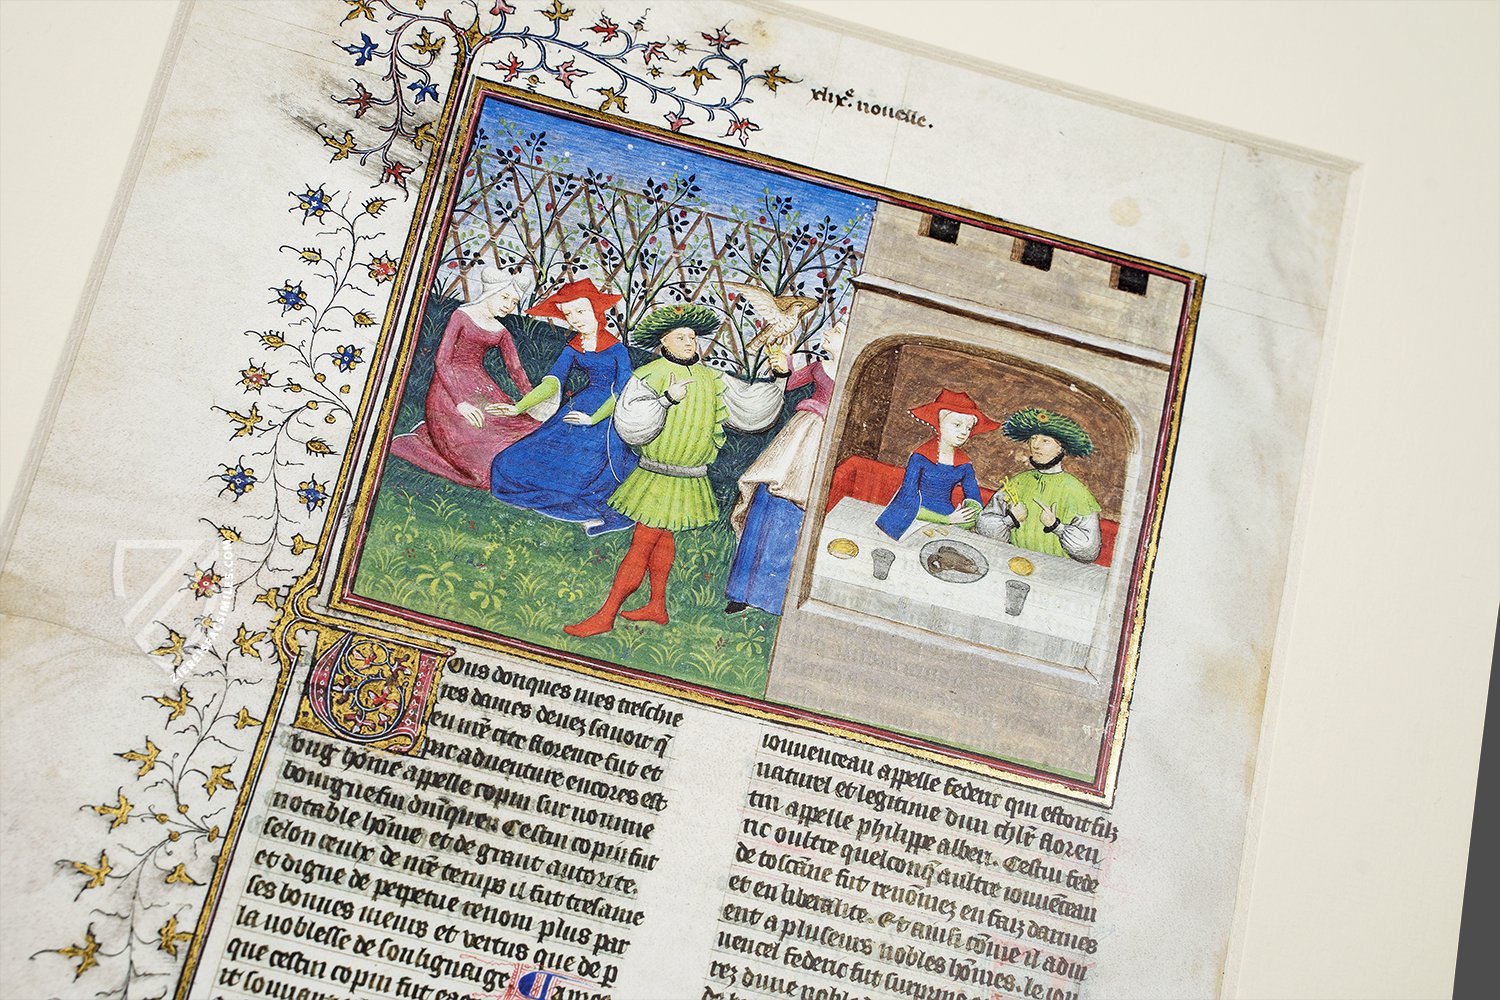 xlix.e nouelle.
Uous donques mes treschie
res dames deuez sauoir q̄
en nr̄e cite florence fut et
par aduenture encores est
vng hōme appelle copin sur nomme
bourguesin dun̄iquer. Cestui copin fut
notable hōme et de grant autorite.
selon ceulx de nr̄e temps il fut tresame
et digne de perpetue renom plus par
ses bonnes meurs et vertus que de p
la noblesse de son lignaige.
que cestui copin fut
iouuenceau appelle federic qui estoit filz
naturel et legitime dun chlr̄ floren
tin appelle philippe alberi. Cestui fede
ric oultre quelconq̄ aultre iouuēceau
de toscāne fut renōmez en faiz darmes
et en liberalite. Et ainsi cōme il adui
ent a pluseurs nobles hōmes. le iou
uencel federic fut surprins
rez dune noble
ZIEREIS FACSIMILES.COM